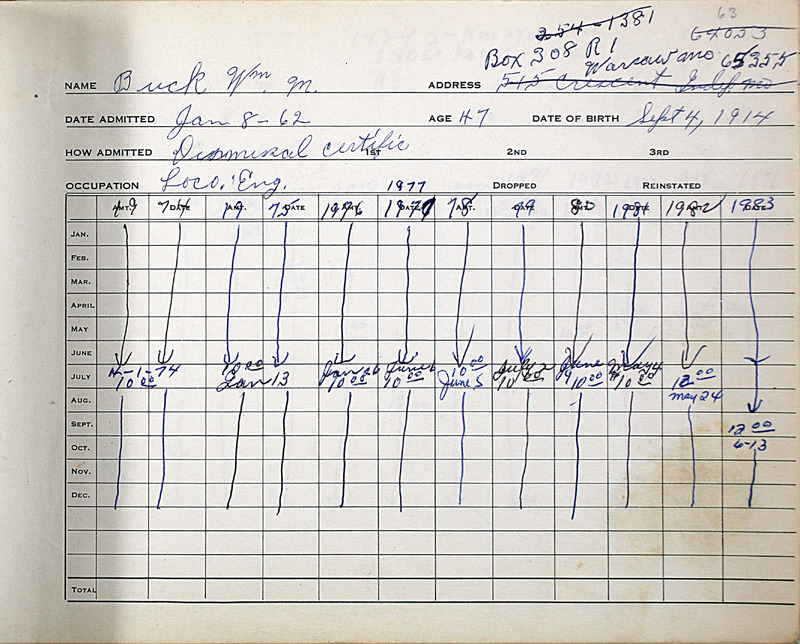 63
254-1381 64053
Box 308 R 1
Warsaw mo 65355
NAME Buck Wm. M. ADDRESS 515 Crescent Indep mo
DATE ADMITTED Jan 8-62 AGE 47 DATE OF BIRTH Sept 4, 1914
HOW ADMITTED Dismissal certific 1ST 2ND 3RD
OCCUPATION Loco. Eng. 1977 DROPPED REINSTATED
AMT. DATE 74 AMT. DATE 75 1976 1977 78 80 1981 1982 1983
JAN.
FEB.
MAR.
APRIL
MAY
JUNE
JULY 1-74 10 00 10 00 Jan 13 Jan 26 10 00 June 6 10 00 10 00 June 5 July 2 10 00 June 9 10 00 May 4 10 00 12 00
AUG. May 24
SEPT. 12 00
OCT. 6-13
NOV.
DEC.
TOTAL